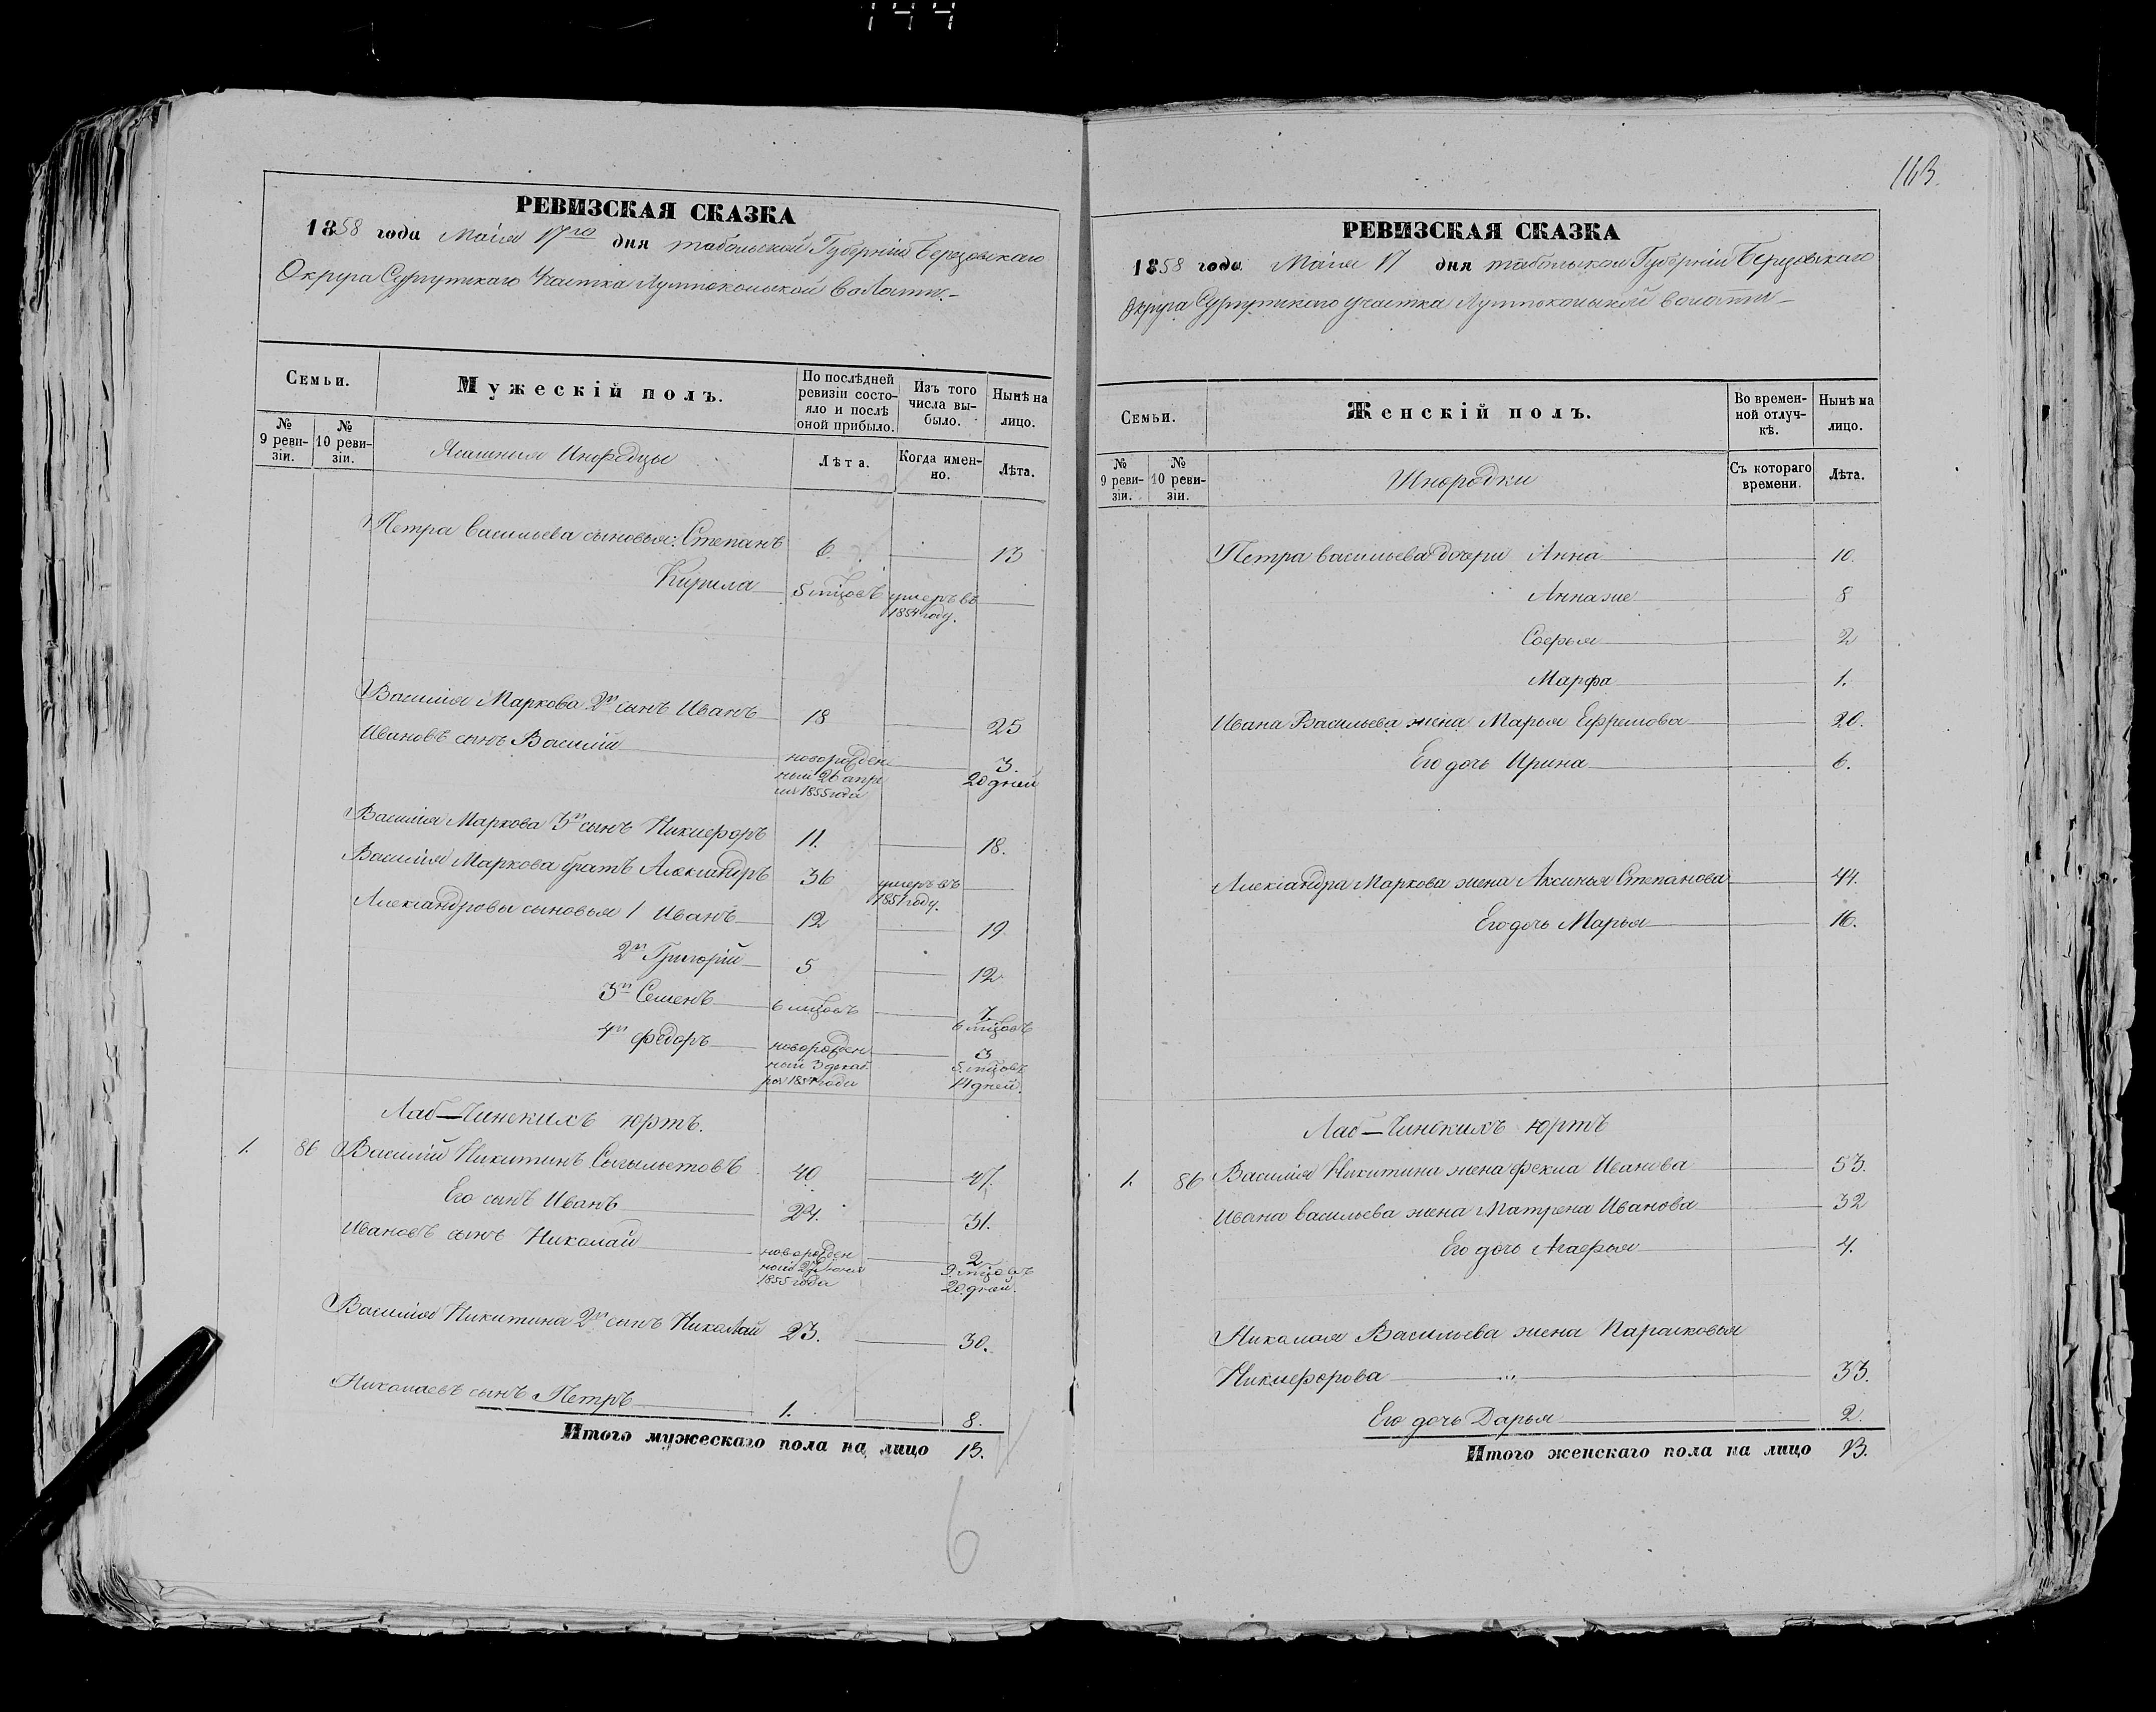 144
РЕВИЗСКАЯ СКАЗКА
1858 года Маія 17го дня тобольской Губерніи Березовскаго
Округа Сургутскаго Участка Лумпокольской волости.
Семьи.
Мужескій полъ.
По послѣдней ревизіи состояло и послѣ оной прибыло.
Изъ того числа выбыло.
Нынѣ на лицо.
№ 9 ревизіи.
№ 10 ревизіи.
Ясашныя Инородцы
Лѣта.
Когда именно.
Лѣта.
Петра васильева сыновья: Степанъ 6. 13
Кирила 5 мцовъ умеръ въ 1854 году.
Василія Маркова 2й сынъ Иванъ 18 25
Ивановъ сынъ Василій новорожденный 26 апреля 1855 года 3. 20 дней
Василія Маркова 3й сынъ Никифоръ 11. 18.
Василія Маркова братъ Александръ 36 умеръ въ 1851 году.
Александровы сыновья 1 Иванъ 12 19
2й Григорій 5 12
3й Семенъ 6 мцовъ 7. 6 мцовъ
4й федоръ новорожденный 3 декабря 1854 года 3 5. мцовъ 14 дней.
Лаб-Чинскихъ юртъ.
1. 86 Василій Никитинъ 40 47.
Его сынъ Иванъ 24. 31.
Ивановъ сынъ Николай новорожденный 1855 года 2 9. мцовъ 20. дней.
Василія Никитина 2й сынъ Николай 23. 30.
Николаевъ сынъ Петръ 1. 8.
Итого мужескаго пола на лицо 13.
6
163.
РЕВИЗСКАЯ СКАЗКА
1858 года Маія 17 дня тобольской Губерніи Березовскаго
Округа Сургутскаго участка Лумпокольской волости
Семьи.
Женскій полъ.
Во временной отлучкѣ.
Нынѣ на лицо.
№ 9 ревизіи.
№ 10 ревизіи.
Инородки
Съ котораго времени.
Лѣта.
Петра васильева дочери Анна 10.
Анна же 8
Софья 2
Марфа 1.
Ивана Васильева жена Марья Ефремова 20.
Его дочь Ирина 6.
Александра Маркова жена Аксинья Степанова 44.
Его дочь Марья 16.
Лаб-Чинскихъ юртъ
1. 86 Василія Никитина жена фекла Иванова 53.
Ивана васильева жена Матрена Иванова 32
Его дочь Агафья 4.
Николая Васильева жена Парасковья
Никифорова 33.
Его дочь Дарья 2.
Итого женскаго пола на лицо 13.